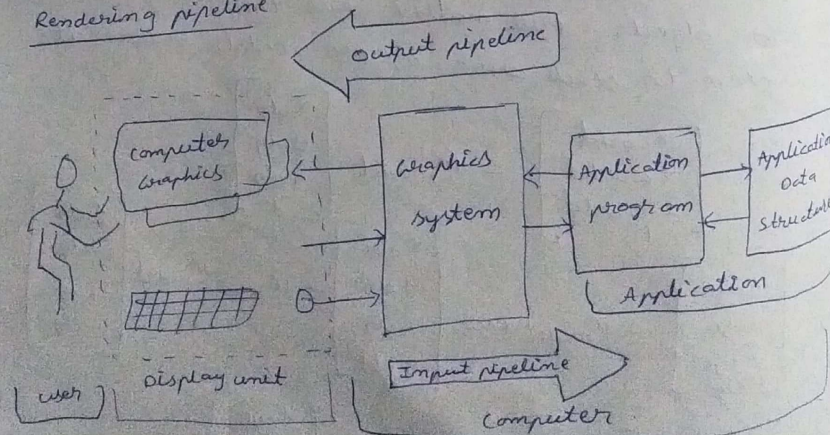 Rendering pipeline
Output pipeline
Computer
Graphics
Graphics
system
Application
program
Data
Application
Input pipeline
user
Display unit
Computer